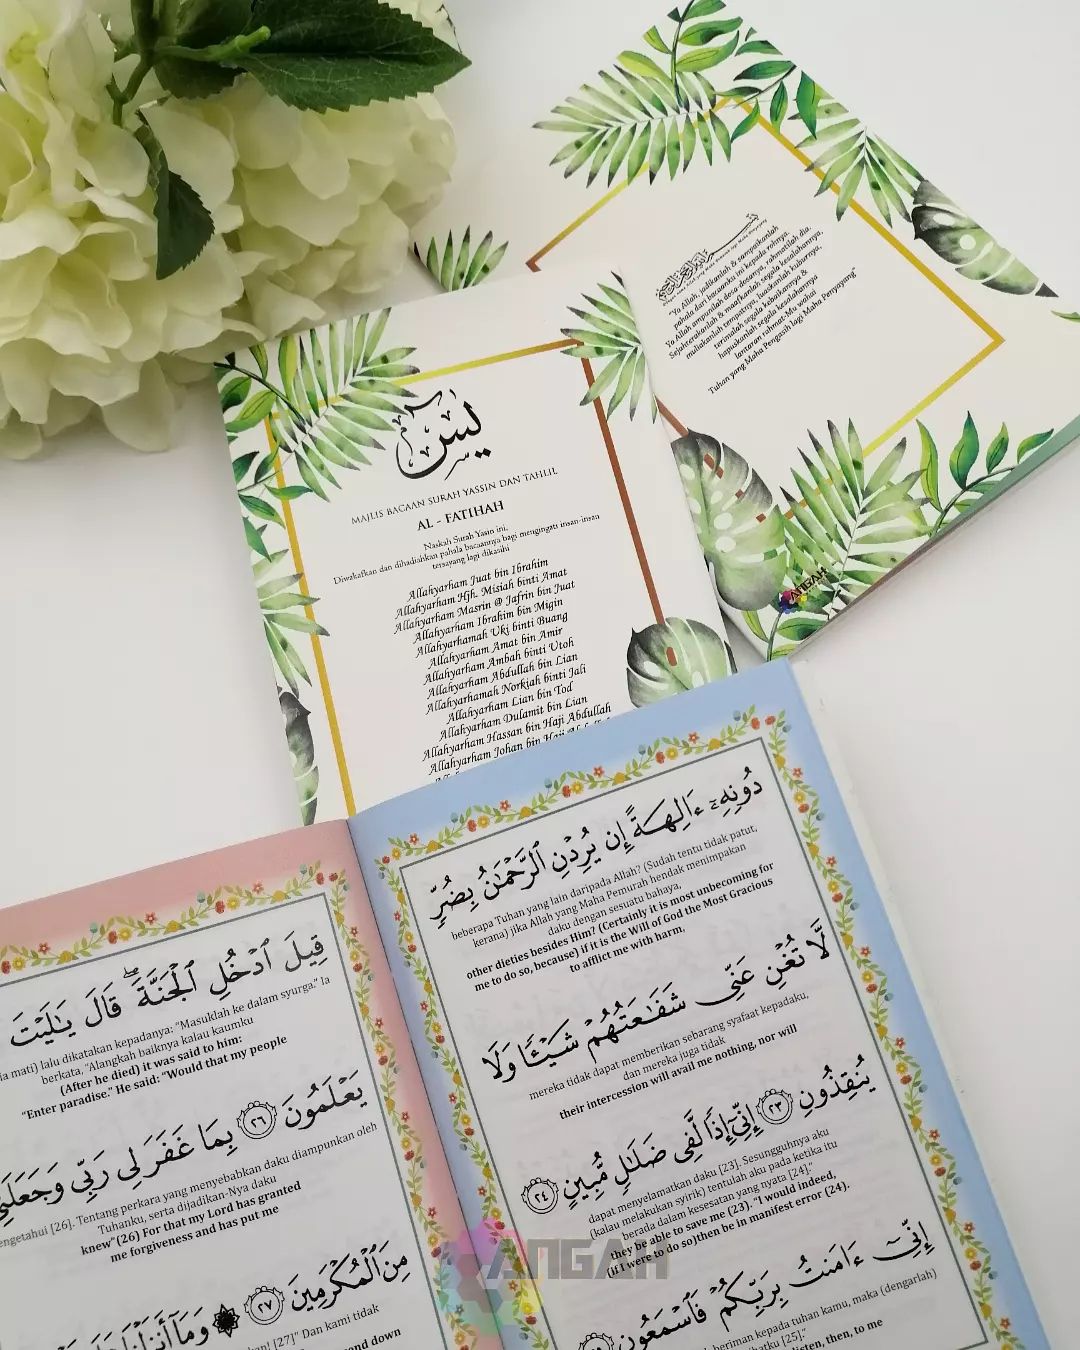 "Ya Allah, jadikanlah & sampaikanlah
pahala dari bacaanku ini kepada rohnya.
Ya Allah ampunilah dosa-dosanya, rahmatilah dia.
Sejahterakanlah & maafkanlah segala kesalahannya,
muliakanlah tempatnya, luaskanlah kuburnya,
terimalah segala kebaikannya &
hapuskanlah segala kesalahannya
lantaran rahmat-Mu wahai
Tuhan yang Maha Pengasih lagi Maha Penyayang"
ANGAH
يس
MAJLIS BACAAN SURAH YASSIN DAN TAHLIL
AL - FATIHAH
Naskah Surah Yasin ini,
Diwakafkan dan dihadiahkan pahala bacaannya bagi mengingati insan-insan
tersayang lagi dikasihi
Allahyarham Juat bin Ibrahim
Allahyarham Hjh. Misiah binti Amat
Allahyarham Masrin @ Jafrin bin Juat
Allahyarham Ibrahim bin Migin
Allahyarhamah Uki binti Buang
Allahyarham Amat bin Amir
Allahyarham Ambah binti Utoh
Allahyarham Abdullah bin Lian
Allahyarhamah Norkiah binti Jali
Allahyarham Lian bin Tod
Allahyarham Dulamit bin Lian
Allahyarham Hassan bin Haji Abdullah
Allahyarham Johan bin Haji
دُونِهِۦٓ ءَالِهَةً إِن يُرِدْنِ ٱلرَّحْمَٰنُ بِضُرٍّ
beberapa Tuhan yang lain daripada Allah? (Sudah tentu tidak patut,
kerana) jika Allah yang Maha Pemurah hendak menimpakan
daku dengan sesuatu bahaya,
other dieties besides Him? (Certainly it is most unbecoming for
me to do so, because) if it is the Will of God the Most Gracious
to afflict me with harm.
لَّا تُغْنِ عَنِّى شَفَٰعَتُهُمْ شَيْـًٔا وَلَا
mereka tidak dapat memberikan sebarang syafaat kepadaku,
dan mereka juga tidak
their intercession will avail me nothing, nor will
يُنقِذُونِ ٢٣ إِنِّىٓ إِذًا لَّفِى ضَلَٰلٍ مُّبِينٍ ٢٤
dapat menyelamatkan daku [23]. Sesungguhnya aku
(kalau melakukan syirik) tentulah aku pada ketika itu
berada dalam kesesatan yang nyata [24]."
they be able to save me (23). "I would indeed,
(if I were to do so)then be in manifest error (24).
إِنِّىٓ ءَامَنتُ بِرَبِّكُمْ فَٱسْمَعُونِ
beriman kepada tuhan kamu, maka (dengarlah)
[25]."
listen, then, to me
قِيلَ ٱدْخُلِ ٱلْجَنَّةَ ۖ قَالَ يَٰلَيْتَ
mati) lalu dikatakan kepadanya: "Masuklah ke dalam syurga." Ia
berkata, "Alangkah baiknya kalau kaumku
(After he died) it was said to him:
"Enter paradise." He said: "Would that my people
يَعْلَمُونَ ٢٦ بِمَا غَفَرَ لِى رَبِّى وَجَعَلَنِى
mengetahui [26]. Tentang perkara yang menyebabkan daku diampunkan oleh
Tuhanku, serta dijadikan-Nya daku
knew"(26) For that my Lord has granted
me forgiveness and has put me
مِنَ ٱلْمُكْرَمِينَ ٢٧ وَمَآ أَنزَلْنَا
[27]" Dan kami tidak
down
ANGAH